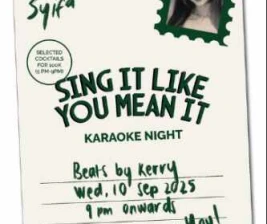 Syifa
SELECTED
COCKTAILS
SING IT LIKE
YOU MEAN IT
KARAOKE NIGHT
Beats by Kerry
Wed, 10 Sep 2025
9 pm onwards